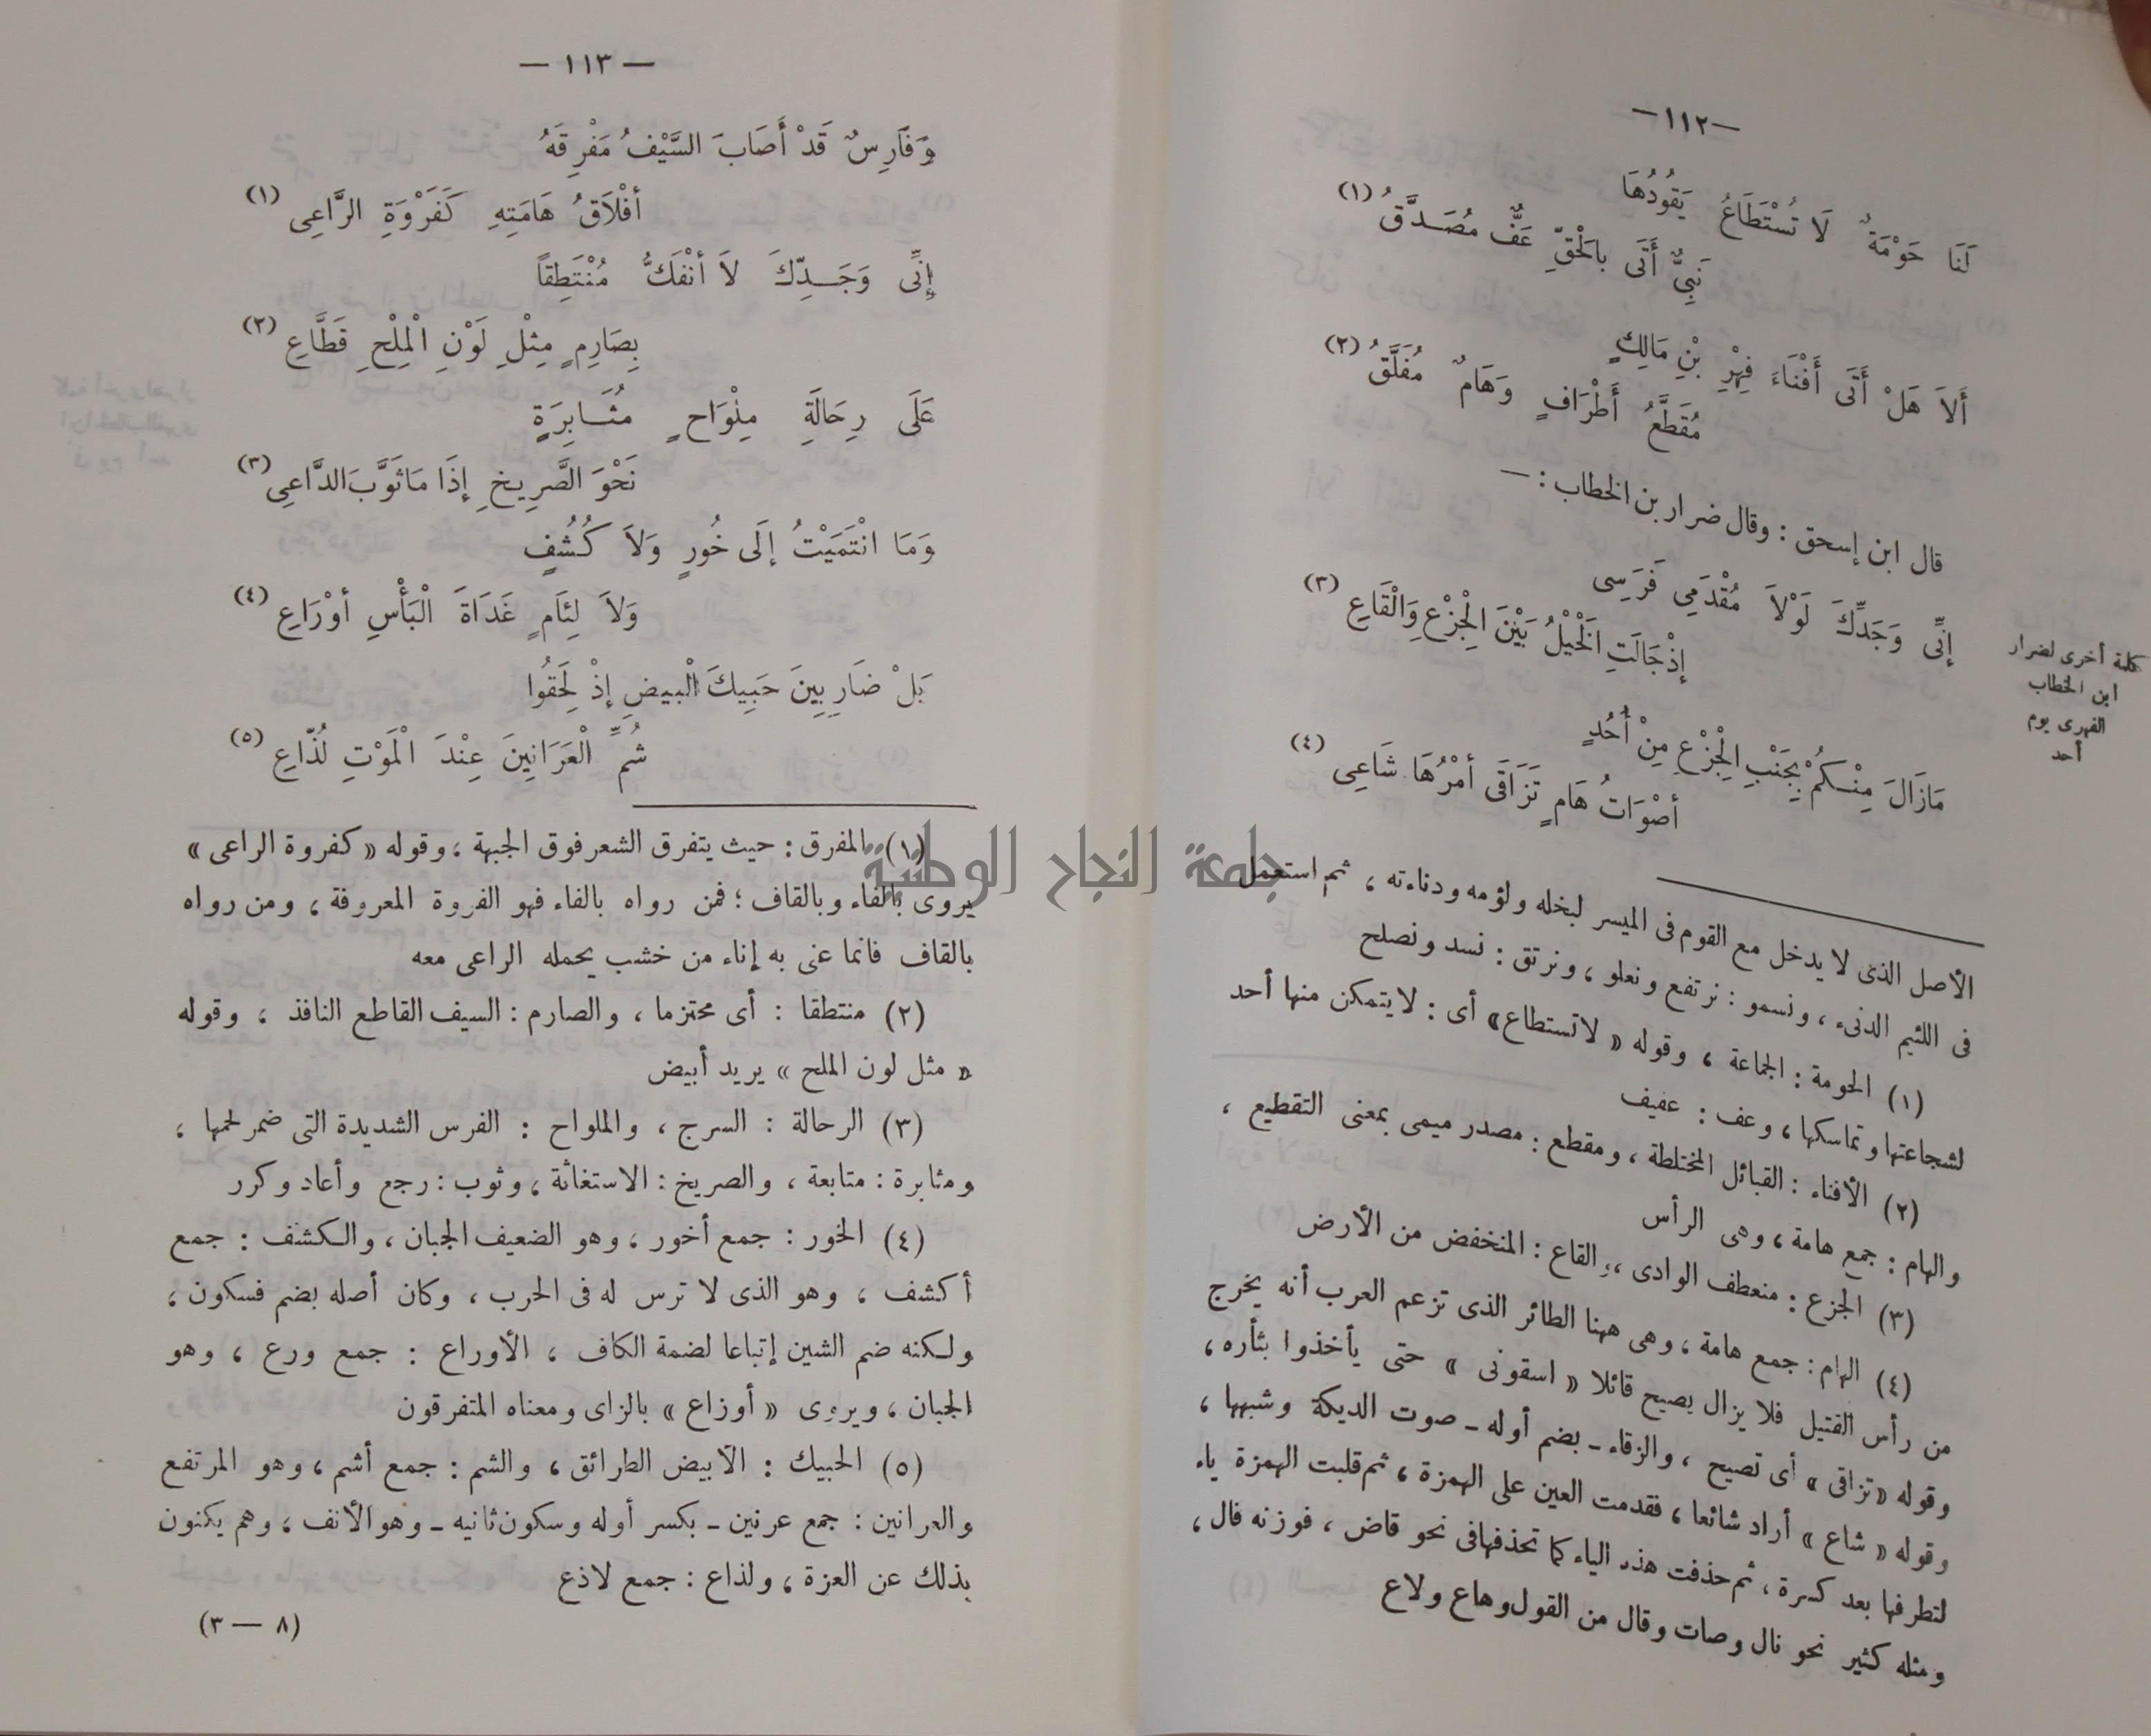 —١١٢—
لَنَا حَوْمَةٌ لَا تُسْتَطَاعُ يَقُودُهَا
نَبِيٌّ أَتَى بِالْحَقِّ عَفٌّ مُصَدَّقُ (١)
أَلاَ هَلْ أَتَى أَفْنَاءَ فِهْرِ بْنِ مَالِكٍ
مُقَطَّعُ أَطْرَافٍ وَهَامٌ مُفَلَّقُ (٢)
قال ابن إسحق : وقال ضرار بن الخطاب : —
إِنِّى وَجَدِّكَ لَوْلاَ مُقْدَمِى فَرَسِى
إِذْ جَالَتِ الْخَيْلُ بَيْنَ الْجِزْعِ وَالْقَاعِ (٣)
مَازَالَ مِنْكُمْ بِجَنْبِ الْجِزْعِ مِنْ أُحُدٍ
أَصْوَاتُ هَامٍ تَزَاقَى أَمْرُهَا شَاعِى (٤)
كلمة أخرى لضرار
ابن الخطاب
الفهرى يوم
أحد
الأصل الذى لا يدخل مع القوم فى الميسر لبخله ولؤمه ودناءته ، ثم استعمل
فى اللئيم الدنىء ، ونسمو : نرتفع ونعلو ، ونرتق : نسد ونصلح
(١) الحومة : الجماعة ، وقوله « لا تستطاع » أى : لا يتمكن منها أحد
لشجاعتها وتماسكها ، وعف : عفيف
(٢) الأفناء : القبائل المختلطة ، ومقطع : مصدر ميمى بمعنى التقطيع ،
والهام : جمع هامة ، وهى الرأس
(٣) الجزع : منعطف الوادى ، والقاع : المنخفض من الأرض
(٤) الهام : جمع هامة ، وهى ههنا الطائر الذى تزعم العرب أنه يخرج
من رأس القتيل فلا يزال يصيح قائلا « اسقونى » حتى يأخذوا بثأره ،
وقوله « تزاقى » أى تصيح ، والزقاء ـ بضم أوله ـ صوت الديكة وشبهها ،
وقوله « شاع » أراد شائعا ، فقدمت العين على الهمزة ، ثم قلبت الهمزة ياء
لتطرفها بعد كسرة ، ثم حذفت هذه الياء كما تحذفها فى نحو قاض ، فوزنه فال ،
ومثله كثير نحو نال وصات وقال من القول وهاع ولاع
— ١١٣ —
وَفَارِسٌ قَدْ أَصَابَ السَّيْفُ مَفْرِقَهُ
أَفْلاَقُ هَامَتِهِ كَفَرْوَةِ الرَّاعِى (١)
إِنِّى وَجَدِّكَ لاَ أَنْفَكُّ مُنْتَطِقاً
بِصَارِمٍ مِثْلِ لَوْنِ الْمِلْحِ قَطَّاعِ (٢)
عَلَى رِحَالَةِ مِلْوَاحٍ مُثَابِرَةٍ
نَحْوَ الصَّرِيخِ إِذَا مَا ثَوَّبَ الدَّاعِى (٣)
وَمَا انْتَمَيْتُ إِلَى خُورٍ وَلاَ كُشُفٍ
وَلاَ لِئَامٍ غَدَاةَ الْبَأْسِ أَوْرَاعِ (٤)
بَلْ ضَارِبِينَ حَبِيكَ الْبيضِ إِذْ لَحِقُوا
شُمِّ الْعَرَانِينَ عِنْدَ الْمَوْتِ لُذَّاعِ (٥)
(١) المفرق : حيث يتفرق الشعر فوق الجبهة ، وقوله « كفروة الراعى »
يروى بالفاء وبالقاف ؛ فمن رواه بالفاء فهو الفروة المعروفة ، ومن رواه
بالقاف فانما عنى به إناء من خشب يحمله الراعى معه
(٢) منتطقا : أى محتزما ، والصارم : السيف القاطع النافذ ، وقوله
« مثل لون الملح » يريد أبيض
(٣) الرحالة : السرج ، والملواح : الفرس الشديدة التى ضمر لحمها ،
ومثابرة : متابعة ، والصريخ : الاستغاثة ، وثوب : رجع وأعاد وكرر
(٤) الخور : جمع أخور ، وهو الضعيف الجبان ، والكشف : جمع
أكشف ، وهو الذى لا ترس له فى الحرب ، وكان أصله بضم فسكون ،
ولكنه ضم الشين إتباعا لضمة الكاف ، الأوراع : جمع ورع ، وهو
الجبان ، ويروى « أوزاع » بالزاى ومعناه المتفرقون
(٥) الحبيك : الأبيض الطرائق ، والشم : جمع أشم ، وهو المرتفع
والعرانين : جمع عرنين ـ بكسر أوله وسكون ثانيه ـ وهو الأنف ، وهم يكنون
بذلك عن العزة ، ولذاع : جمع لاذع
(٨ — ٣)
جامعة النجاح الوطنية